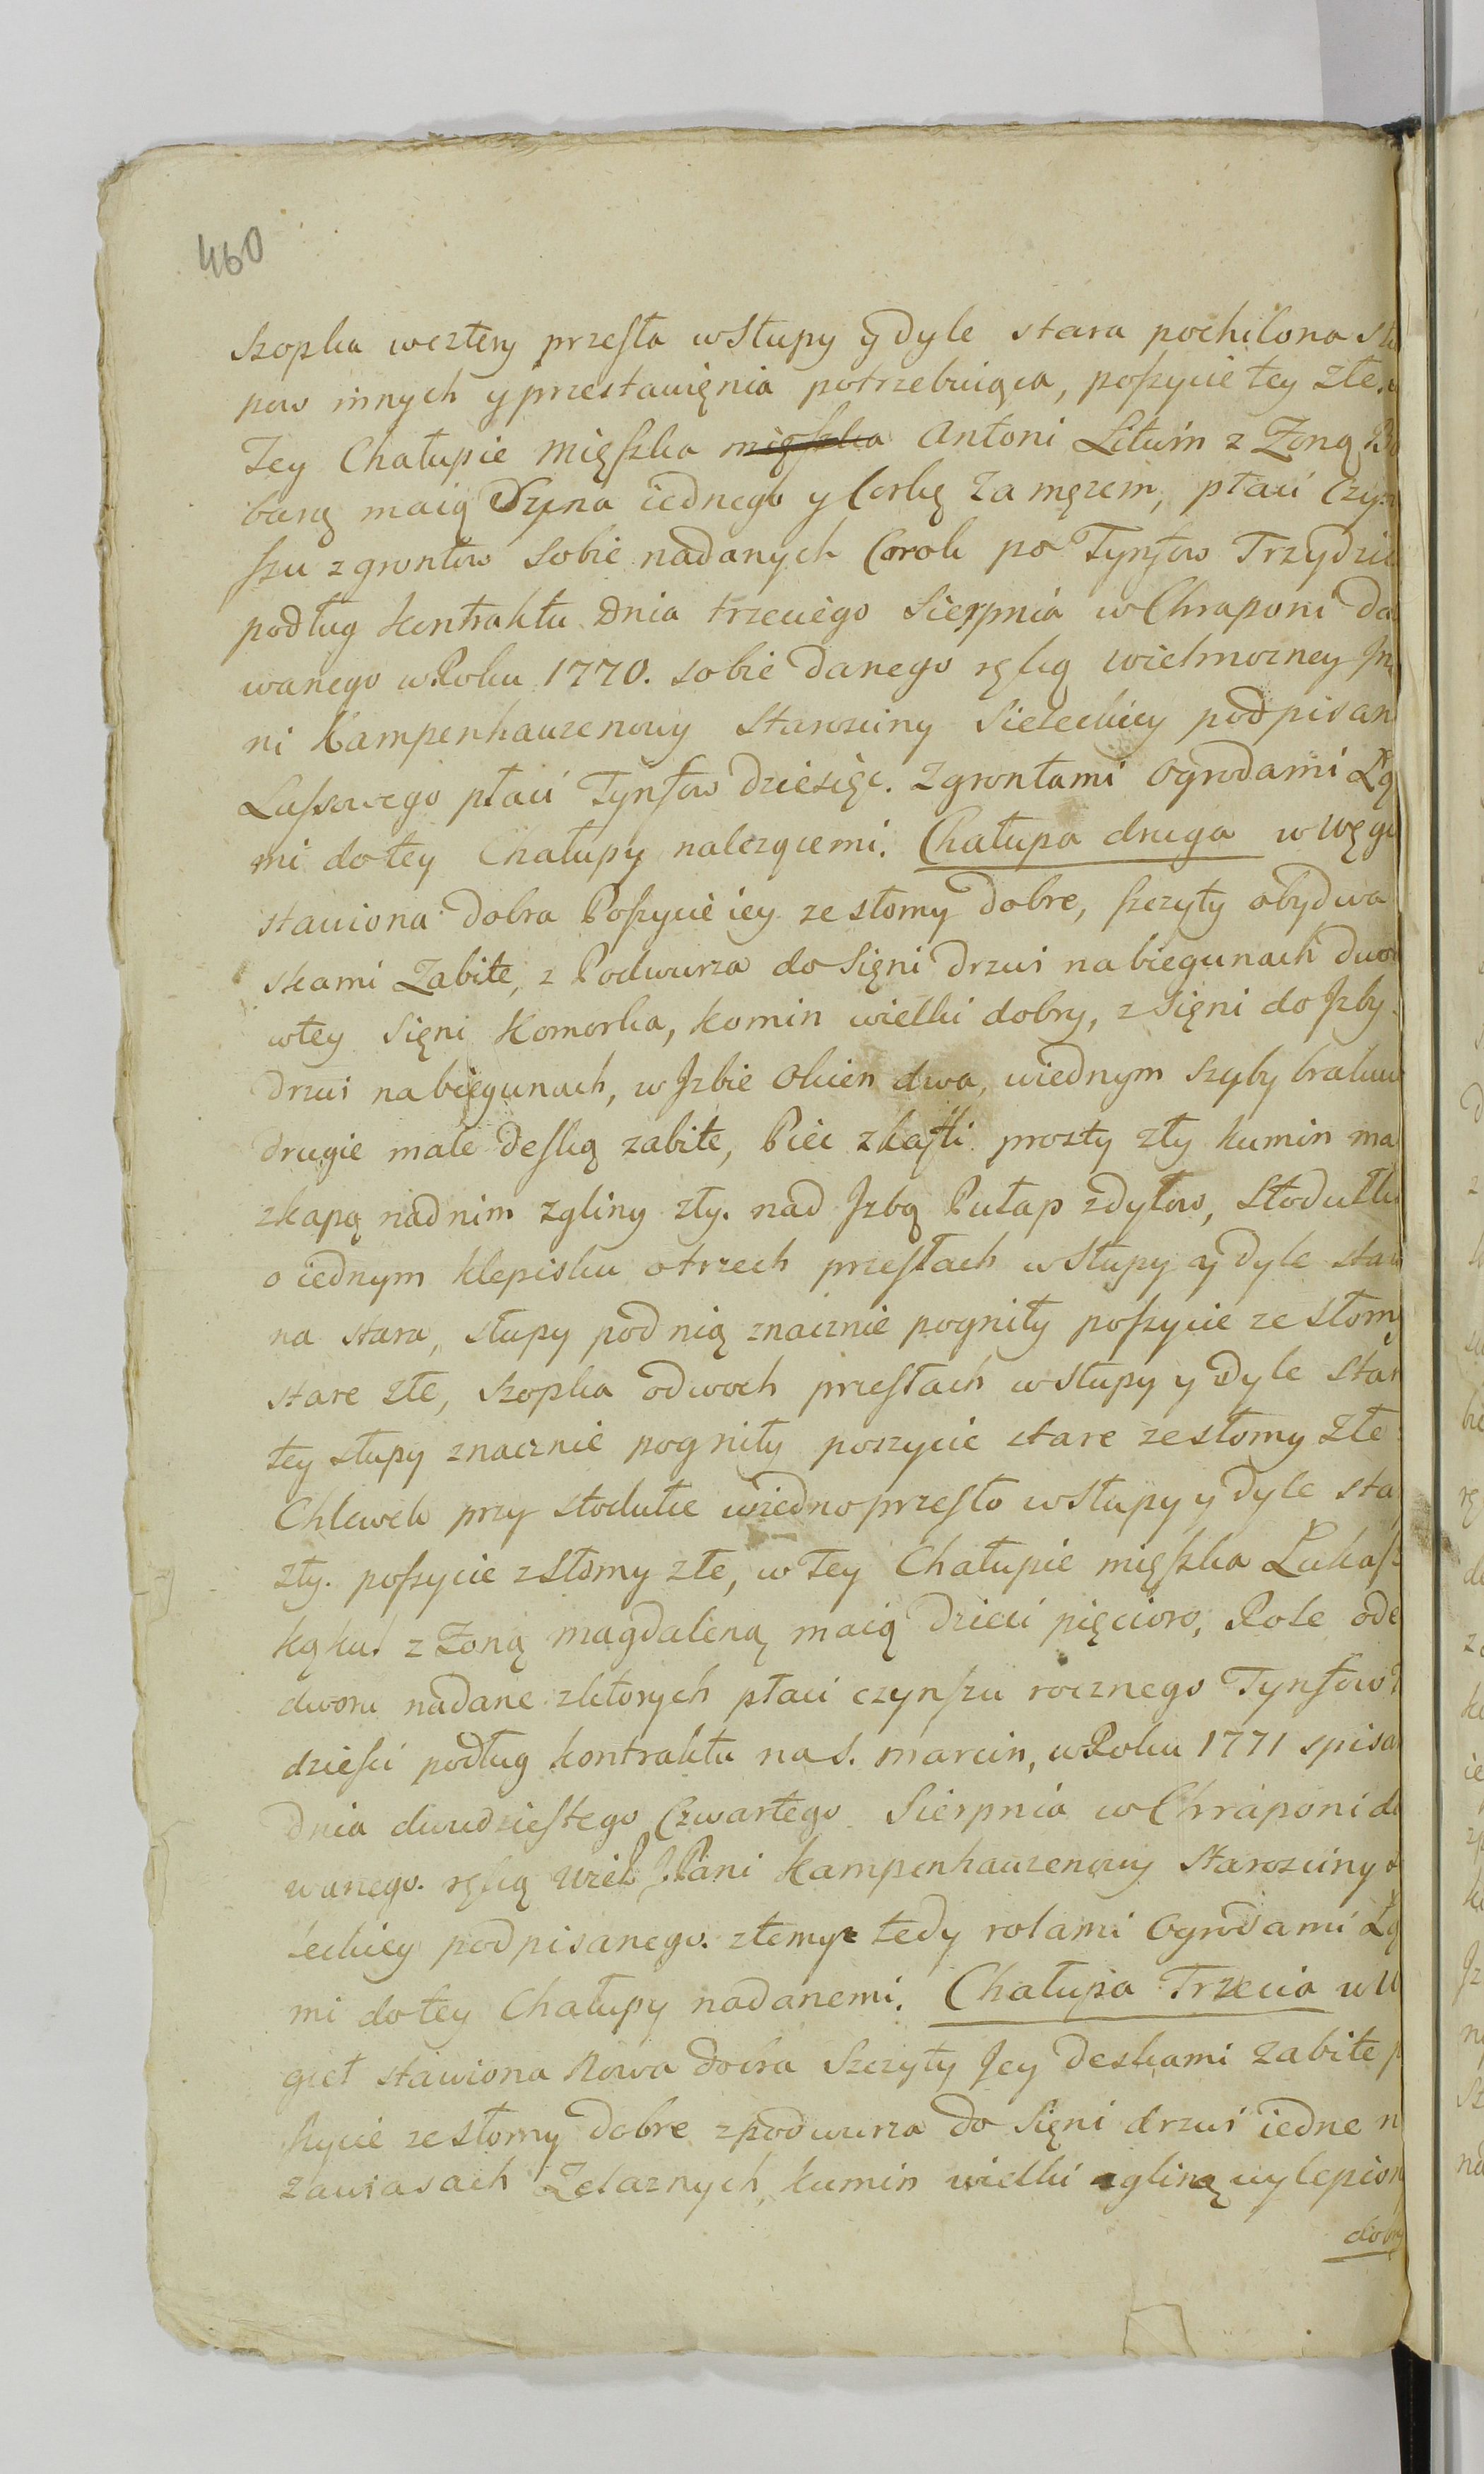 460
Szopka wcztery przesła wSłupy y dyle stara pochilona słu
pow innych y przestawięnia potrzebuiąca, poszycie tey złe.
Tey Chałupie Mięszka mięszka Antoni Litwin z Zoną Ba
barą maią Syna iednego y Corkę za męzem, płaci Czyn
szu zgrontow sobie nadanych Corok po Tynfow Trzydzie
podług kontraktu Dnia trzeciego Sierpnia wChraponi Da
wanego wRoku 1770. sobie Danego ręką wielmozney Jm
ni Kampenhauzenowy Starosciny Sieleckiey podpisan
Laszowego płaci Tynfow dziesięc. Zgrontami Ogrodami Łą
mi dotey Chałupy nalezącemi. Chałupa druga w Węgi
stawiona dobra Poszycie iey ze słomy dobre, szczyty obydwa
skami Zabite, z Podwurza do Sięni Drzwi nabiegunach dwo
wtey Sięni Komorka, komin wielki dobry, z Sięni do Jzby
Drzwi nabiegunach, w Jzbie Okien dwa, wiednym Szyby brakuie
drugie małe Deską zabite, Piec zkafli prosty zły kumin ma
zkapą nadnim zgliny zły. nad Jzbą Pułap zdylow, Stodułka
o iednym klepisku otrzech przesłach wSłupy y dyle staw
na stara, słupy pod nią znacznie pogniły poszycie ze Słomy
stare złe, Szopka odwoch przesłach w słupy y Dyle Star
tey słupy znacznie pogniły poszycie stare ze słomy złe
Chlewek przy stodule wiedno przesło wSłupy y dyle sta
zły. poszycie zSłomy złe, w Tey Chałupie mięszka Łukasz
Kąkul z Zoną Magdaleną maią Dzieci pięcioro, Role ode
dworu nadane zktorych płaci czynszu rocznego Tynfow
dziesci podług kontraktu na S. Marcin, wRoku 1771 spisa
Dnia dwudziestego Czwartego Sierpnia wChraponi da
wanego. ręką Wiel JPani Kampenhauzenowy Starosciny
leckiey podpisanego. ztemy tedy rolami Ogrodami Łą
mi dotey Chałupy nadanemi. Chałupa Trzecia w W
gieł stawiona Nowa dobra Szczyty Jey Deskami zabite p
szycie ze słomy dobre zpodwurza do Sięni drzwi iedne n
zawiasach Zelaznych, kumin wielki gliną wylepion
dobry